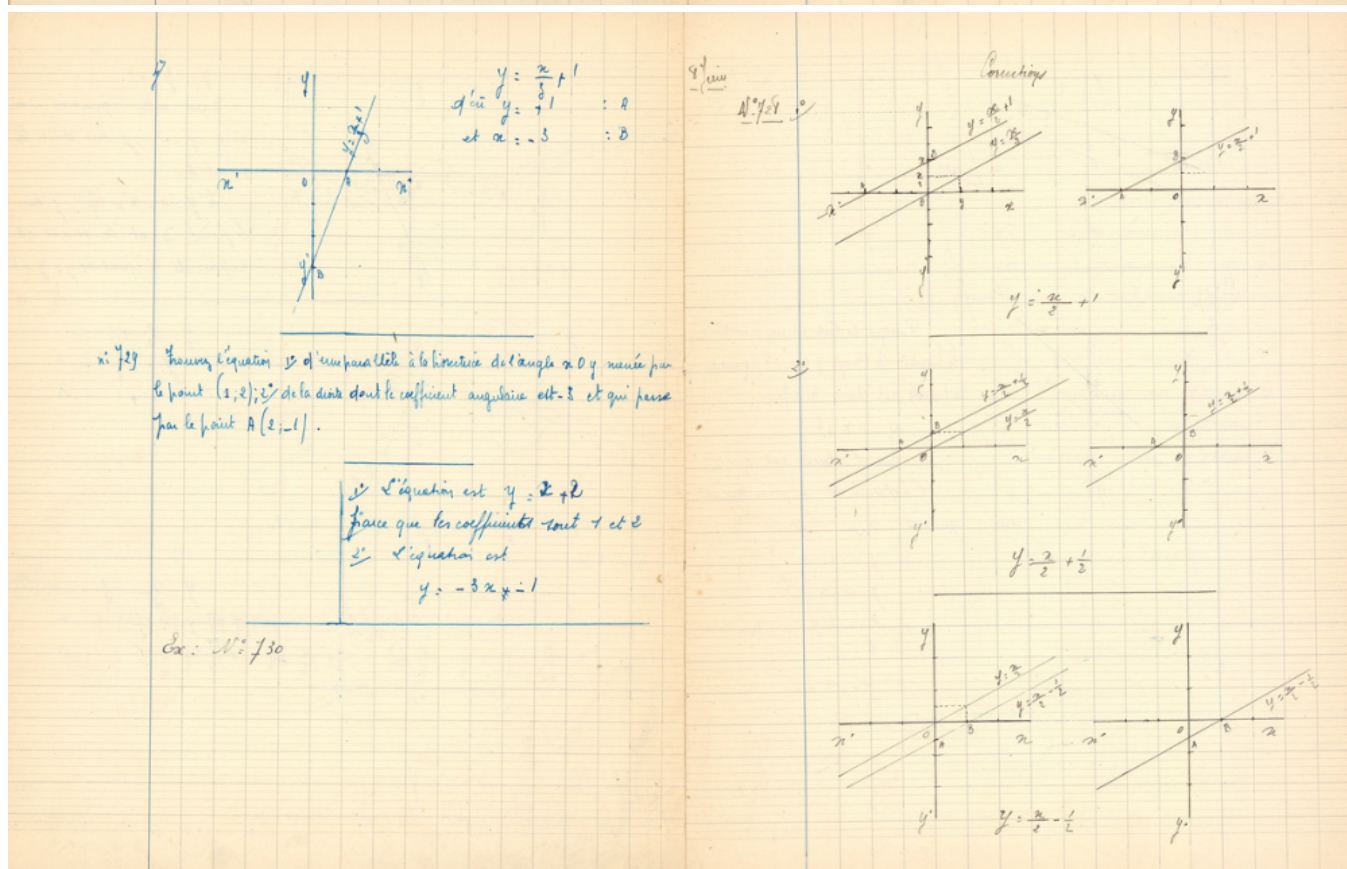 y = x/3 + 1
d'où y = +1 : A
et x = -3 : B
y
x'
O
A
y'
B
n: 729 Trouvez l'équation 1° d'une parallèle à la bissectrice de l'angle x O y menée par
le point (1;2); 2° de la droite dont le coefficient angulaire est -3 et qui passe
par le point A (2;-1).
1° L'équation est y = x + 2
parce que les coefficients sont 1 et 2
2° L'équation est
y = -3x + -1
Ex: N° 730
8 Juin
Corrections
N° 728 1°
y
y = x/2 + 1
B
A
x'
O
x
y'
y
y = x/2 + 1
B
x'
A
O
x
y'
y = x/2 + 1
2°
y
y = x/2 + 1/2
y = x/2
B
A
x'
O
x
y'
y
y = x/2 + 1/2
B
A
x'
O
x
y'
y = x/2 + 1/2
y
y = x/2 - 1/2
x'
O
A
B
x
y'
y
y = x/2 - 1/2
x'
O
A
B
x
y'
y = x/2 - 1/2